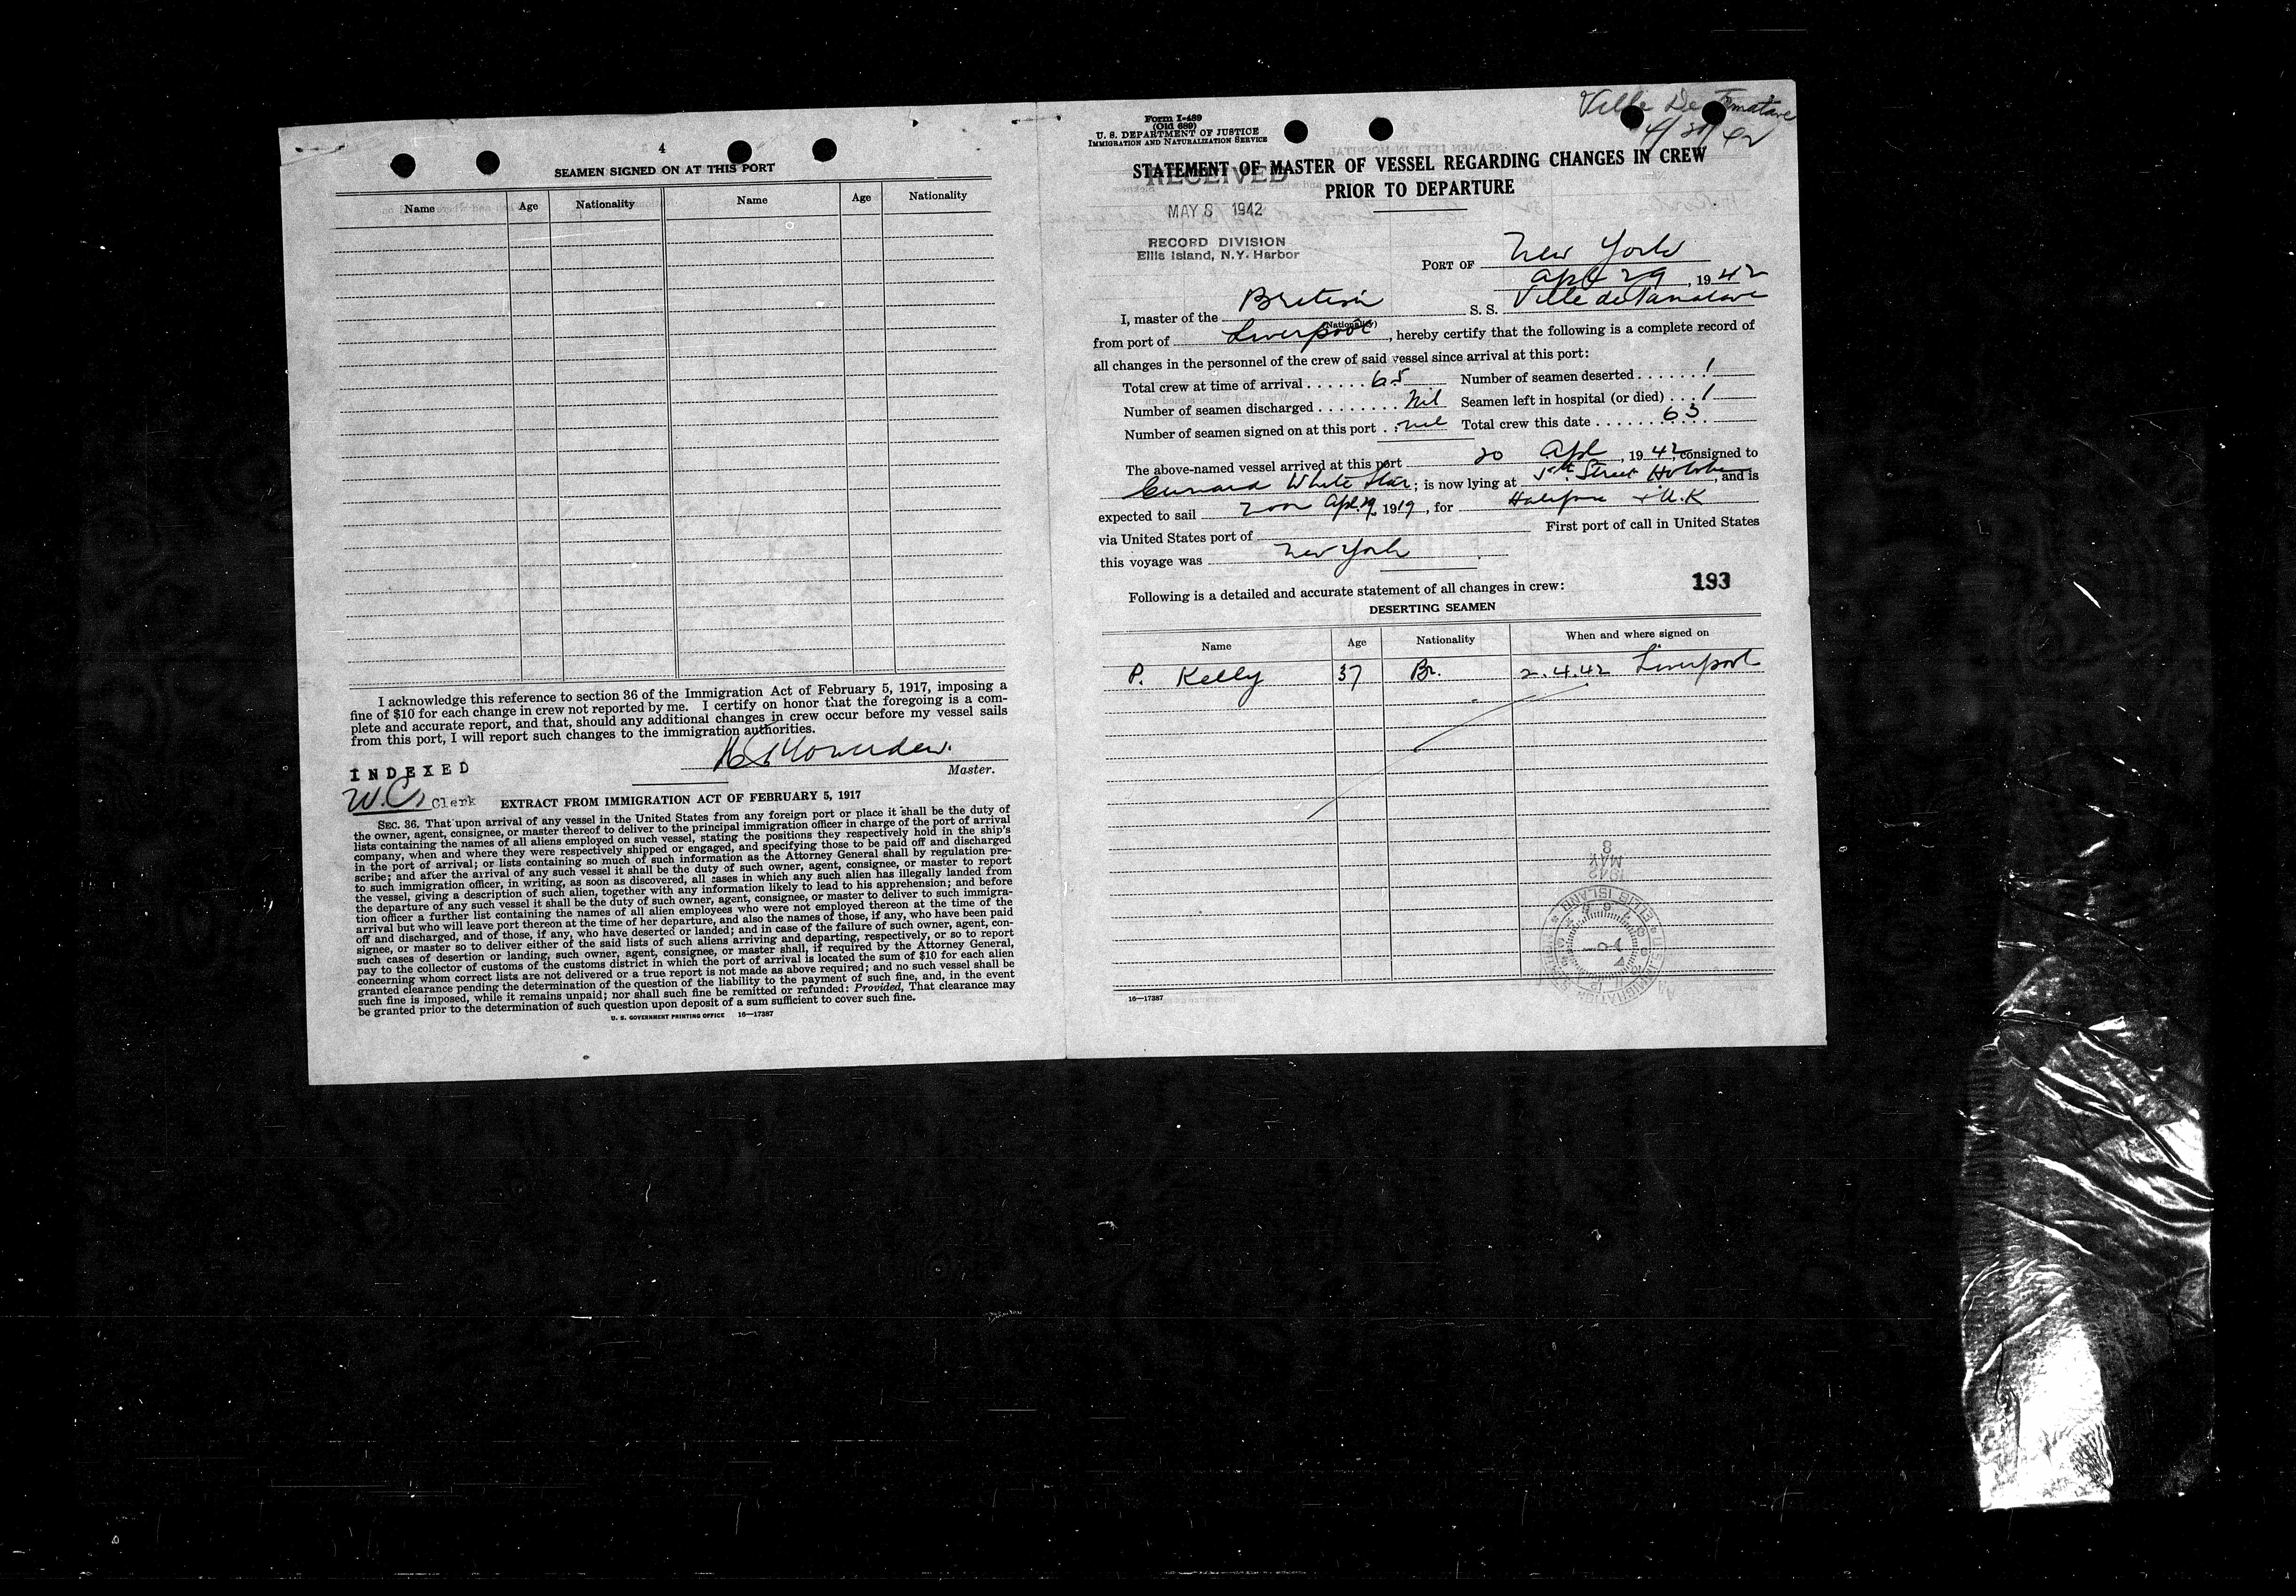 4
SEAMEN SIGNED ON AT THIS PORT
Name Age Nationality Name Age Nationality
I acknowledge this reference to section 36 of the Immigration Act of February 5, 1917, imposing a
fine of $10 for each change in crew not reported by me. I certify on honor that the foregoing is a com-
plete and accurate report, and that, should any additional changes in crew occur before my vessel sails
from this port, I will report such changes to the immigration authorities.
Master.
INDEXED
W.C. Clerk
EXTRACT FROM IMMIGRATION ACT OF FEBRUARY 5, 1917
SEC. 36. That upon arrival of any vessel in the United States from any foreign port or place it shall be the duty of
the owner, agent, consignee, or master thereof to deliver to the principal immigration officer in charge of the port of arrival
lists containing the names of all aliens employed on such vessel, stating the positions they respectively hold in the ship's
company, when and where they were respectively shipped or engaged, and specifying those to be paid off and discharged
in the port of arrival; or lists containing so much of such information as the Attorney General shall by regulation pre-
scribe; and after the arrival of any such vessel it shall be the duty of such owner, agent, consignee, or master to report
to such immigration officer, in writing, as soon as discovered, all cases in which any such alien has illegally landed from
the vessel, giving a description of such alien, together with any information likely to lead to his apprehension; and before
the departure of any such vessel it shall be the duty of such owner, agent, consignee, or master to deliver to such immigra-
tion officer a further list containing the names of all alien employees who were not employed thereon at the time of the
arrival but who will leave port thereon at the time of her departure, and also the names of those, if any, who have been paid
off and discharged, and of those, if any, who have deserted or landed; and in case of the failure of such owner, agent, con-
signee, or master so to deliver either of the said lists of such aliens arriving and departing, respectively, or so to report
such cases of desertion or landing, such owner, agent, consignee, or master shall, if required by the Attorney General,
pay to the collector of customs of the customs district in which the port of arrival is located the sum of $10 for each alien
concerning whom correct lists are not delivered or a true report is not made as above required; and no such vessel shall be
granted clearance pending the determination of the question of the liability to the payment of such fine, and, in the event
such fine is imposed, while it remains unpaid; nor shall such fine be remitted or refunded: Provided, That clearance may
be granted prior to the determination of such question upon deposit of a sum sufficient to cover such fine.
U. S. GOVERNMENT PRINTING OFFICE 16—17387
Ville De Tamatave
4/20/42
Form I-489
(Old 689)
U. S. DEPARTMENT OF JUSTICE
IMMIGRATION AND NATURALIZATION SERVICE
STATEMENT OF MASTER OF VESSEL REGARDING CHANGES IN CREW
PRIOR TO DEPARTURE
RECEIVED
MAY 8 1942
RECORD DIVISION
Ellis Island, N.Y. Harbor
PORT OF New York
Apl 29, 1942
I, master of the British S. S. Ville de Tamatave
(Nationality)
from port of Liverpool, hereby certify that the following is a complete record of
all changes in the personnel of the crew of said vessel since arrival at this port:
Total crew at time of arrival 65 Number of seamen deserted 1
Number of seamen discharged Nil Seamen left in hospital (or died) 1
Number of seamen signed on at this port nil Total crew this date 63
The above-named vessel arrived at this port 20 Apl, 1942, consigned to
Cunard White Star; is now lying at 5th Street Hoboken, and is
expected to sail Noon Apl 19, 1919, for Halifax + U.K
via United States port of First port of call in United States
this voyage was New York
Following is a detailed and accurate statement of all changes in crew:
193
DESERTING SEAMEN
Name Age Nationality When and where signed on
P. Kelly 37 Br. 2.4.42 Liverpool
MAY 8 1942
16—17387